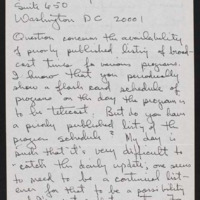 Suite 650
Washington DC 20001
Question concerns the availability
of priorly published listing of broad-
cast times for various programs.
I know that you periodically
show a flash card schedule of
programs on the day the program is
to be telecast. But do you have
a priorly published list of the
program schedule? My day is
such that it's very difficult to
catch this daily update, one seems
to need to be a continual list-
ener for that to be a possibility